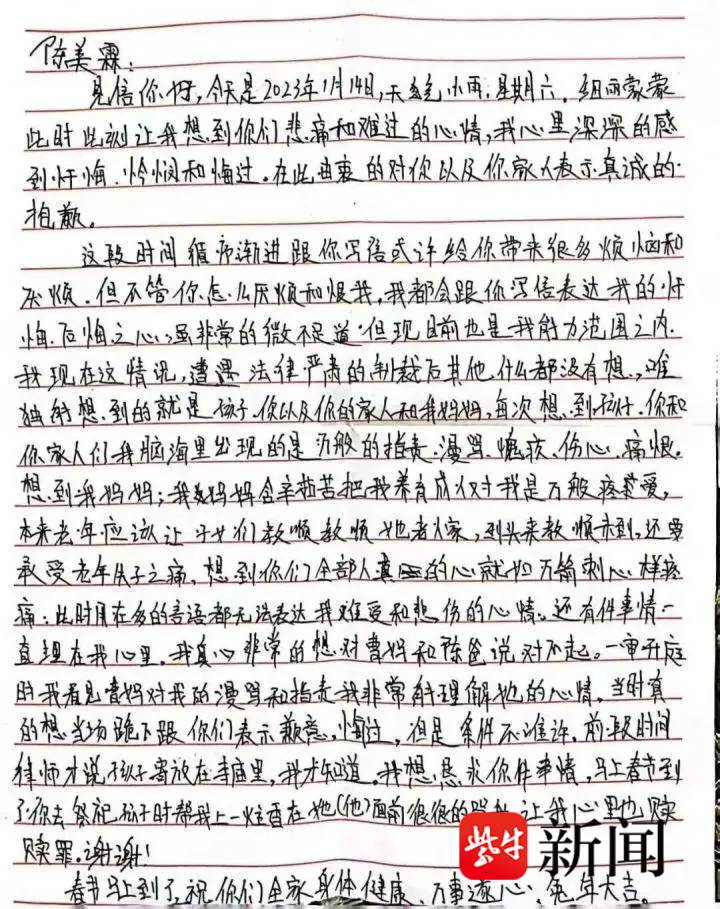 陈美霖：
见信你好，今天是2023年1月14日，天气小雨，星期六。细雨蒙蒙
此时此刻让我想到你们悲痛和难过的心情，我心里深深的感
到忏悔、怜悯和悔过。在此由衷的对你以及你家人表示真诚的
抱歉。
这段时间循序渐进跟你写信或许给你带来很多烦恼和
厌烦。但不管你怎么厌烦和恨我，我都会跟你写信表达我的忏
悔、后悔之心，虽非常的微不足道，但现目前也是我能力范围之内。
我现在这情况，遭遇法律严肃的制裁后其他什么都没有想，唯
独能想到的就是孩子、你以及你的家人和我妈妈，每次想到孩子、你和
你家人们我脑海里出现的是万般的指责、漫骂、愧疚、伤心、痛恨。
想到我妈妈；我妈妈含辛茹苦把我养育成人对我是万般疼爱，
本来老年应该让子女们教顺教顺她老人家，到头来教顺未到，还要
承受老年失子之痛，想到你们全部人真的心就如万箭刺心一样疼
痛；此时用在多的言语都无法表达我难受和悲伤的心情。还有件事情一
直埋在我心里，我真心非常的想对曹妈和陈爸说对不起。一审开庭
时我看见曹妈对我的漫骂和指责我非常能理解她的心情，当时真
的想当场跪下跟你们表示歉意，悔过，但是条件不准许。前段时间
律师才说孩子寄放在寺庙里，我才知道。我想恳求你件事情，马上春节到
了你去祭祀孩子时帮我上一炷香在她(他)面前很很的 让我心里也赎
赎罪。谢谢！
春节马上到了，祝你们全家身体健康、万事遂心、兔年大吉。
紫牛新闻